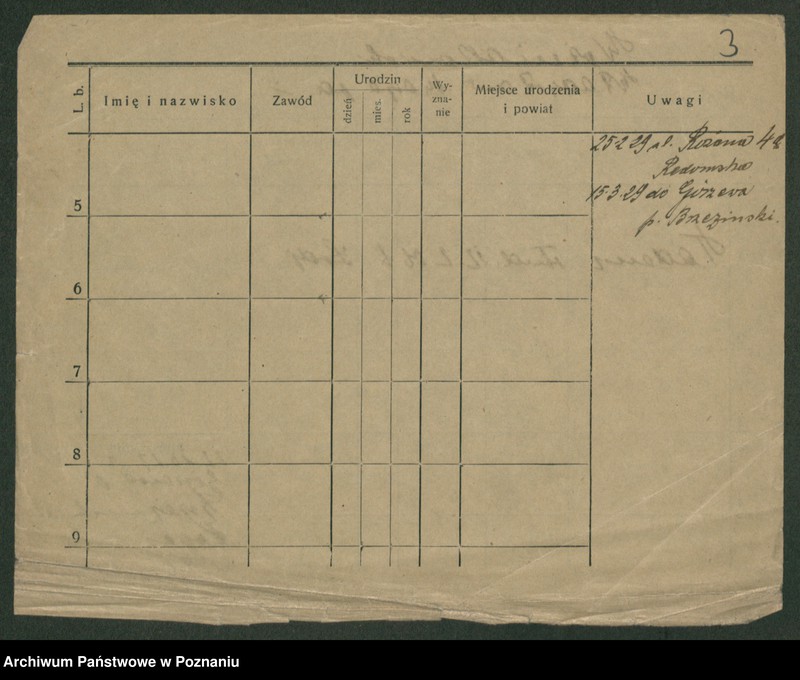 3
L. b.
Imię i nazwisko
Zawód
Urodzin
dzień
mies.
rok
Wy-
zna-
nie
Miejsce urodzenia
i powiat
Uwagi
25.2.29 ul. Różana 4
Radomska
15.3.29 do Górzewa
p. Brzeziński.
5
6
7
8
9
Archiwum Państwowe w Poznaniu